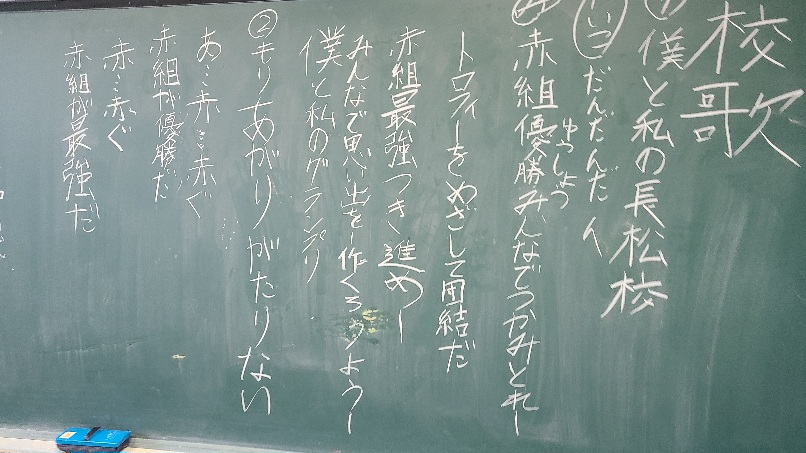 校歌
① 僕と私の長松校
だんだんだん
赤組優勝みんなでつかみとれー
ゆうしょう
トロフィーをめざして団結だ
赤組最強つき進めー
みんなで思い出を作くろうようー
僕と私のグランプリ
② もりあがりがたりない
あ…赤…赤ぐ
赤組が優勝だ
赤…赤ぐ
赤組が最強だ